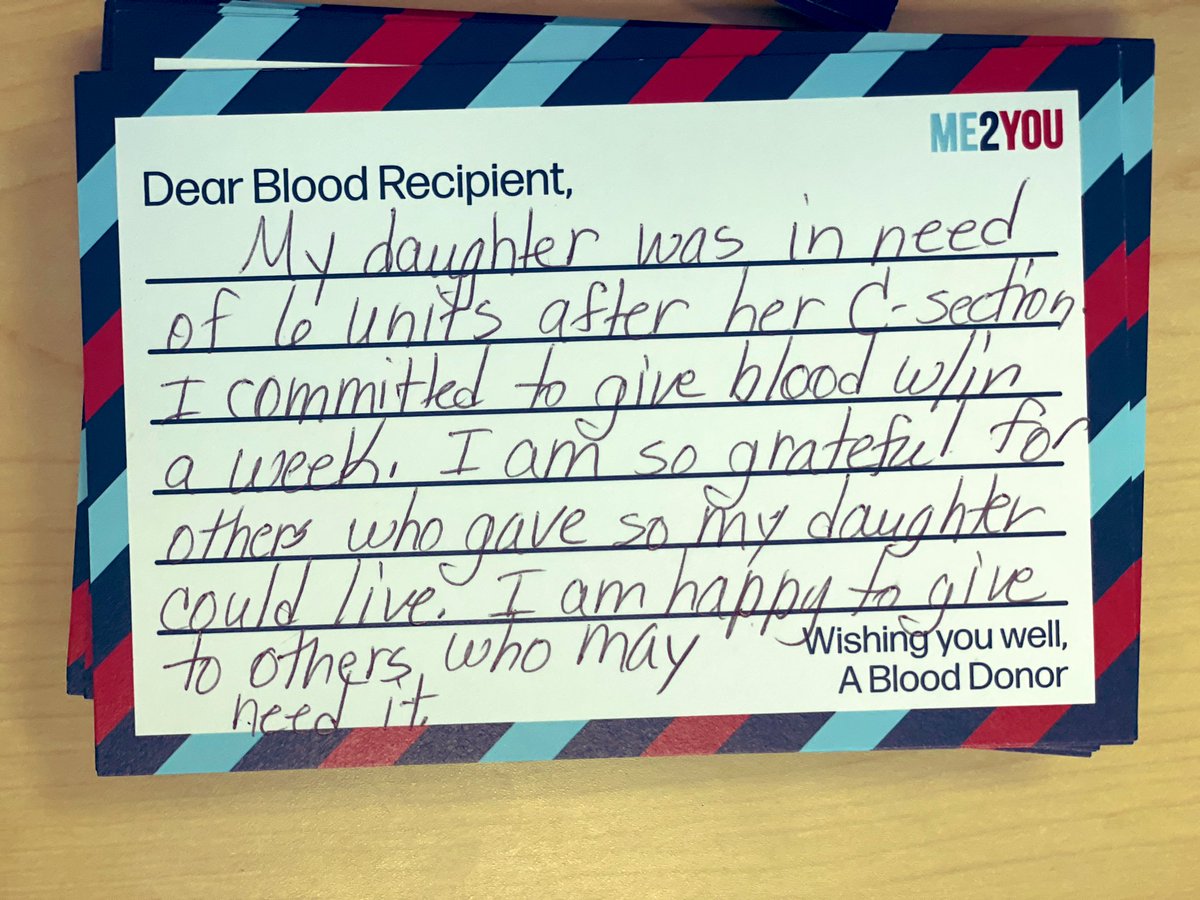 ME2YOU
Dear Blood Recipient,
My daughter was in need
of 6 units after her C-section.
I committed to give blood w/in
a week. I am so grateful for
others who gave so my daughter
could live. I am happy to give
to others who may
need it.
Wishing you well,
A Blood Donor